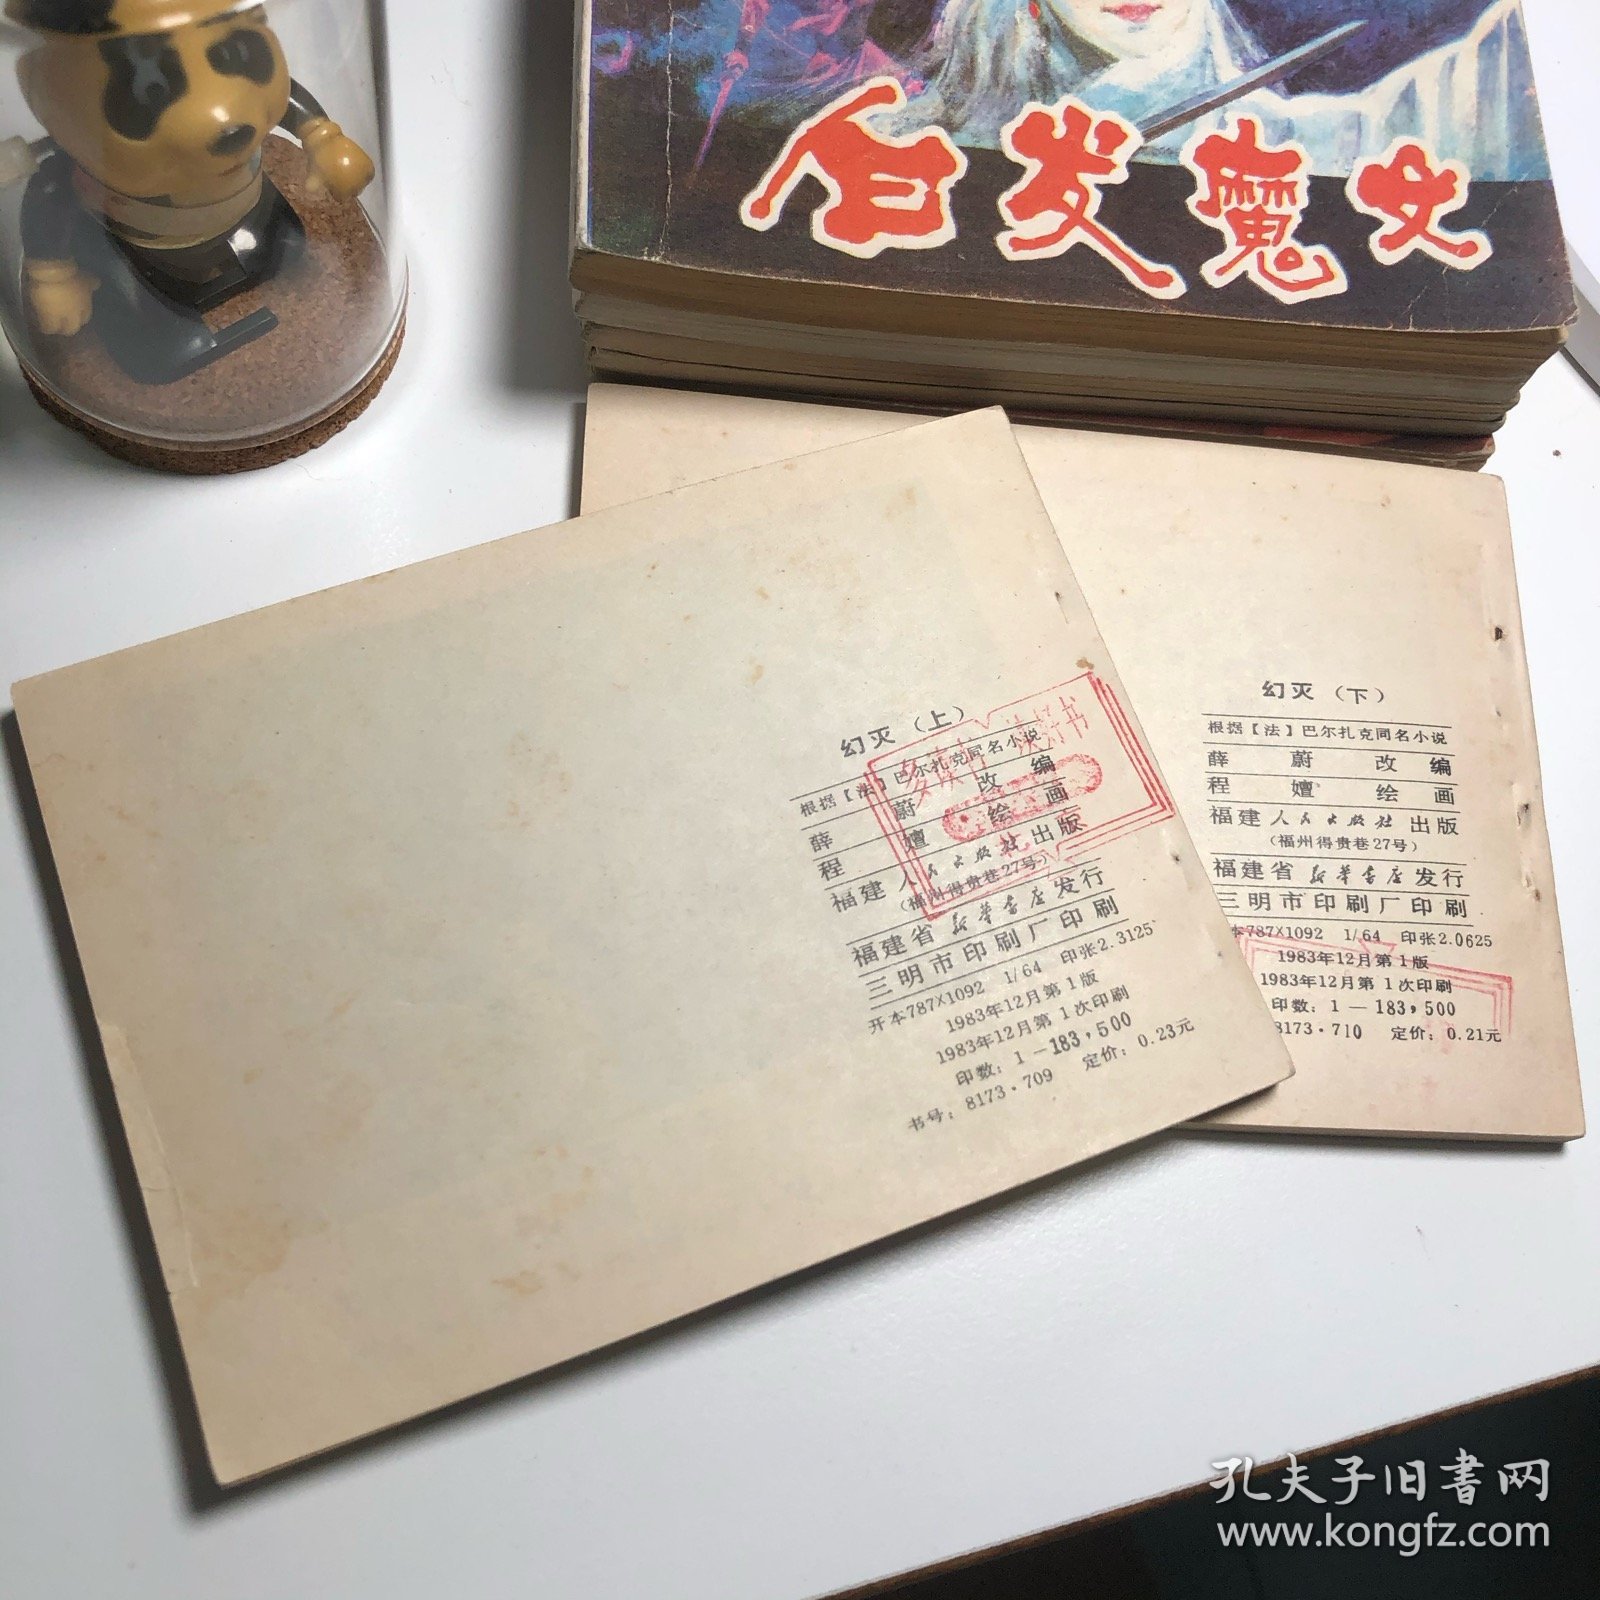 白发魔女
幻灭（上）
根据【法】巴尔扎克同名小说
薛蔚改编
程嬗绘画
福建人民出版社出版
（福州得贵巷27号）
福建省新华书店发行
三明市印刷厂印刷
开本787×1092 1/64 印张2.3125
1983年12月第1版
1983年12月第1次印刷
印数：1—183,500
书号：8173·709 定价：0.23元
多读书 读好书
幻灭（下）
根据【法】巴尔扎克同名小说
薛蔚改编
程嬗绘画
福建人民出版社出版
（福州得贵巷27号）
福建省新华书店发行
三明市印刷厂印刷
本787×1092 1/64 印张2.0625
1983年12月第1版
1983年12月第1次印刷
印数：1—183,500
8173·710 定价：0.21元
孔夫子旧书网
www.kongfz.com